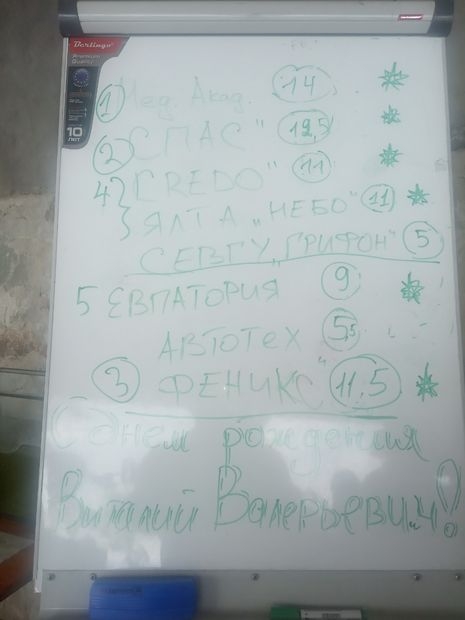 Berlingo
Premium
Quality
10
ЛЕТ
1 Мед. Акад. 14
2 СПАС" 12,5
4 CREDO" 11
ЯЛТА „НЕБО" 11
СЕВГУ „ГРИФОН" 5
5 ЕВПАТОРИЯ 9
АВТОТЕХ 5,5
3 ФЕНИКС" 11,5
С днем рождения
Виталий Валерьевич!